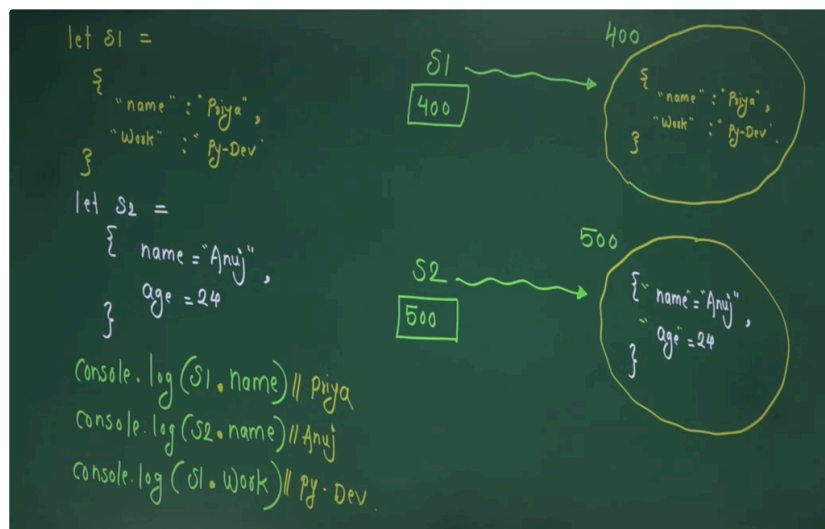 let S1 =
{
"name" : "Priya",
"Work" : "Py-Dev"
}
let S2 =
{ name = "Anuj",
age = 24
}
console.log(S1.name) // Priya
console.log(S2.name) // Anuj
console.log(S1.Work) // Py-Dev.
S1
400
400
{
"name" : "Priya",
"Work" : "Py-Dev".
}
S2
500
500
{ "name" = "Anuj",
"age" = 24
}